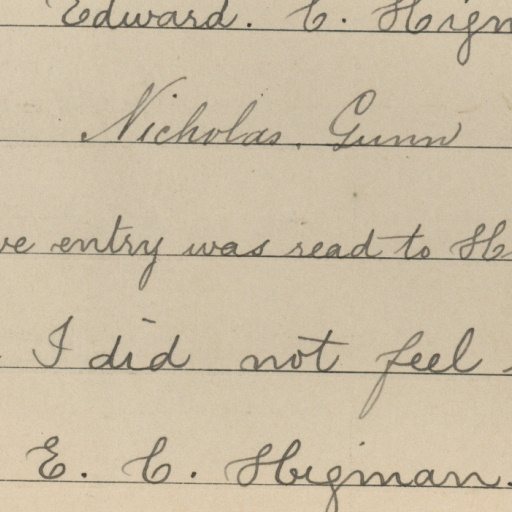 Edward. C. Higm
Nicholas. Gunn
ve entry was read to H
I did not feel
E. C. Higman.